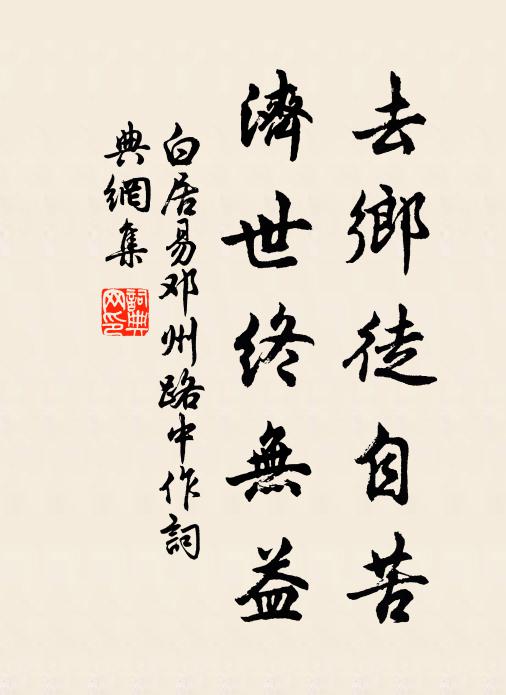 去鄉徒自苦
濟世終無益
白居易邓州路中作詞
典網集
詞典
网印